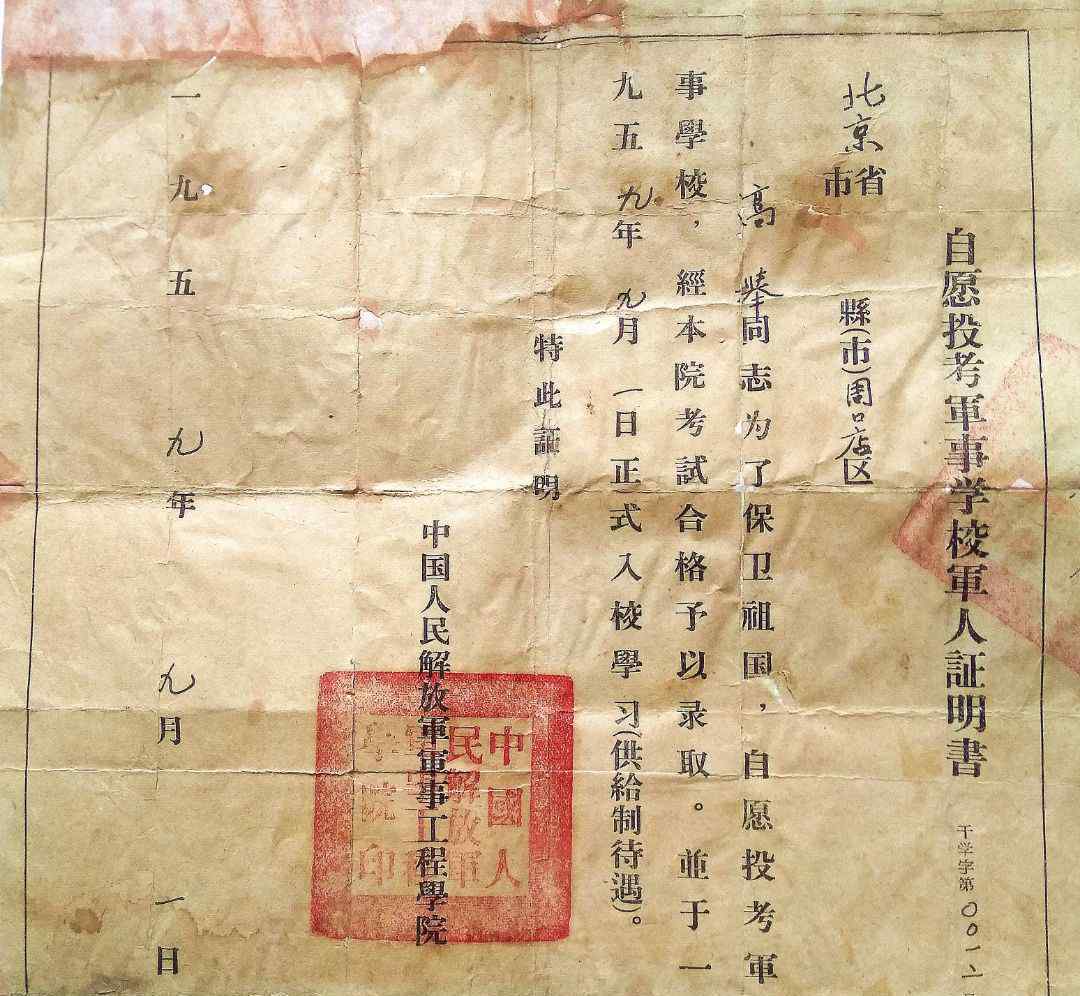 自愿投考軍事学校軍人証明書
干学字第001
北京省市 縣(市)周口店区
高 举同志为了保卫祖国，自愿投考軍
事學校，經本院考試合格予以录取。並于一
九五九年九月一日正式入校學习(供給制待遇)。
特此証明
中国人民解放軍軍事工程學院
中國人民解放軍軍事工程學院印
一九五九年九月一日